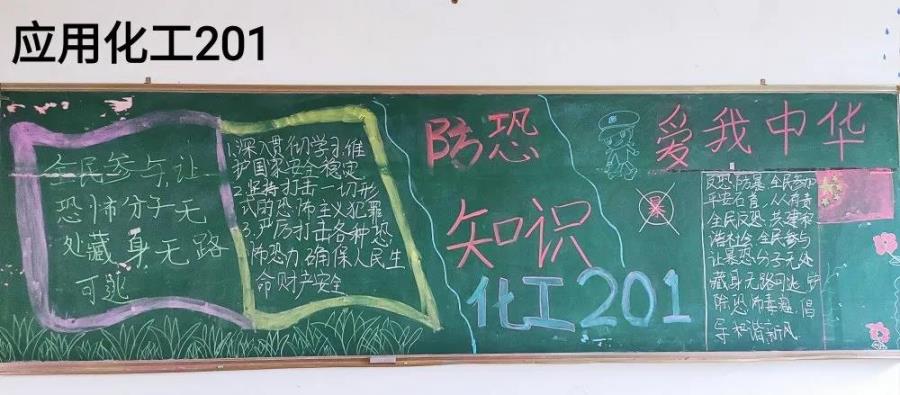 应用化工201
全民参与,让
恐怖分子无
处藏身,无路
可逃
1.深入贯彻学习,维
护国家安全稳定
2.坚持打击一切形
式的恐怖主义犯罪
3.严厉打击各种恐
怖恐力,确保人民生
命财产安全
防恐
知识
化工201
爱我中华
暴
反恐防暴,全民参与
平安石首,从有责
全民反恐,共建和
谐社会,全民参与
让暴恐分子无处
藏身,无路可逃
除恐怖毒瘤 倡
导和谐新风